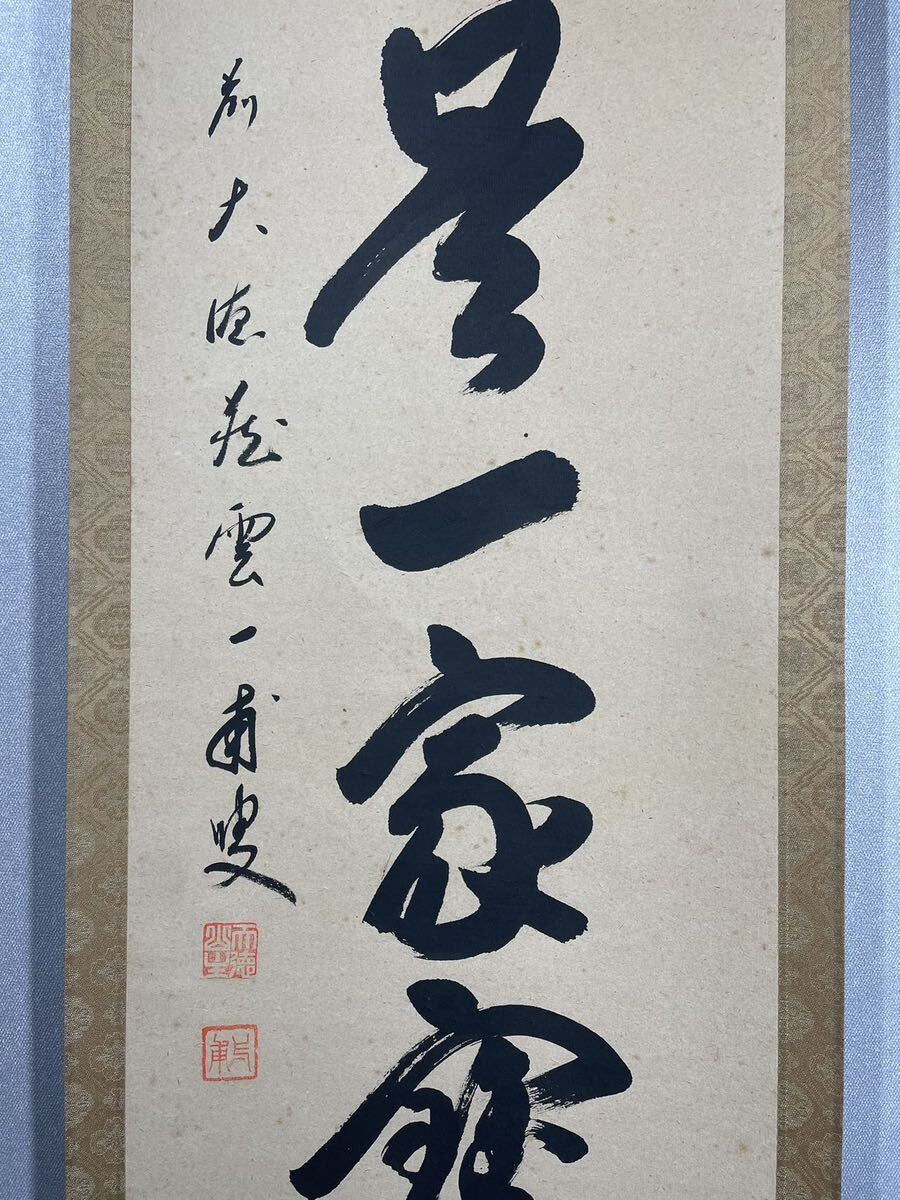 是一家寶
前大徳藏雲一甫叟